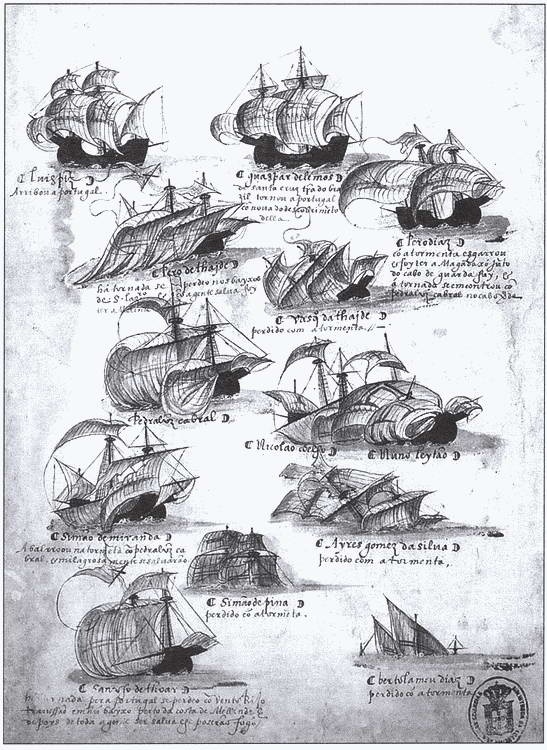 Luis piz
Arribou a portugal.
gaspar de lemos
de santa cruz trã do bra
zil tornou a portugal
cõ nova do descobrimẽto
della
Pero diaz
cõ a tormenta esgarrou
e foy ter a Magadaxo jũto
do cabo de guarda fuy, e
á tornada se encontrou cõ
pedralvz cabral no cabo
Pero de thajde
há tornada se perdeo nos baixos
de S. lazº e a gente salva foy
ter a
Vasq̃ da thajde
perdido com a tormenta
Pedralvz cabral
Nicolao coelho
Nuno leytão
Simão de miranda
Abalrroou na tormẽta cõ pedralvz ca
bral, e milagrosamente se salvarão
Ayres gomez da silva
perdido com a tormenta,
Simão de pina
perdido cõ a tormẽta.
Sancho de thoar
tornada pera portugal se perdeo cõ vento Rijo
travessão em hũ baixo perto da costa de Mellinde
depois de toda a gente ser salva
bertolameu diaz
perdido cõ a tormenta